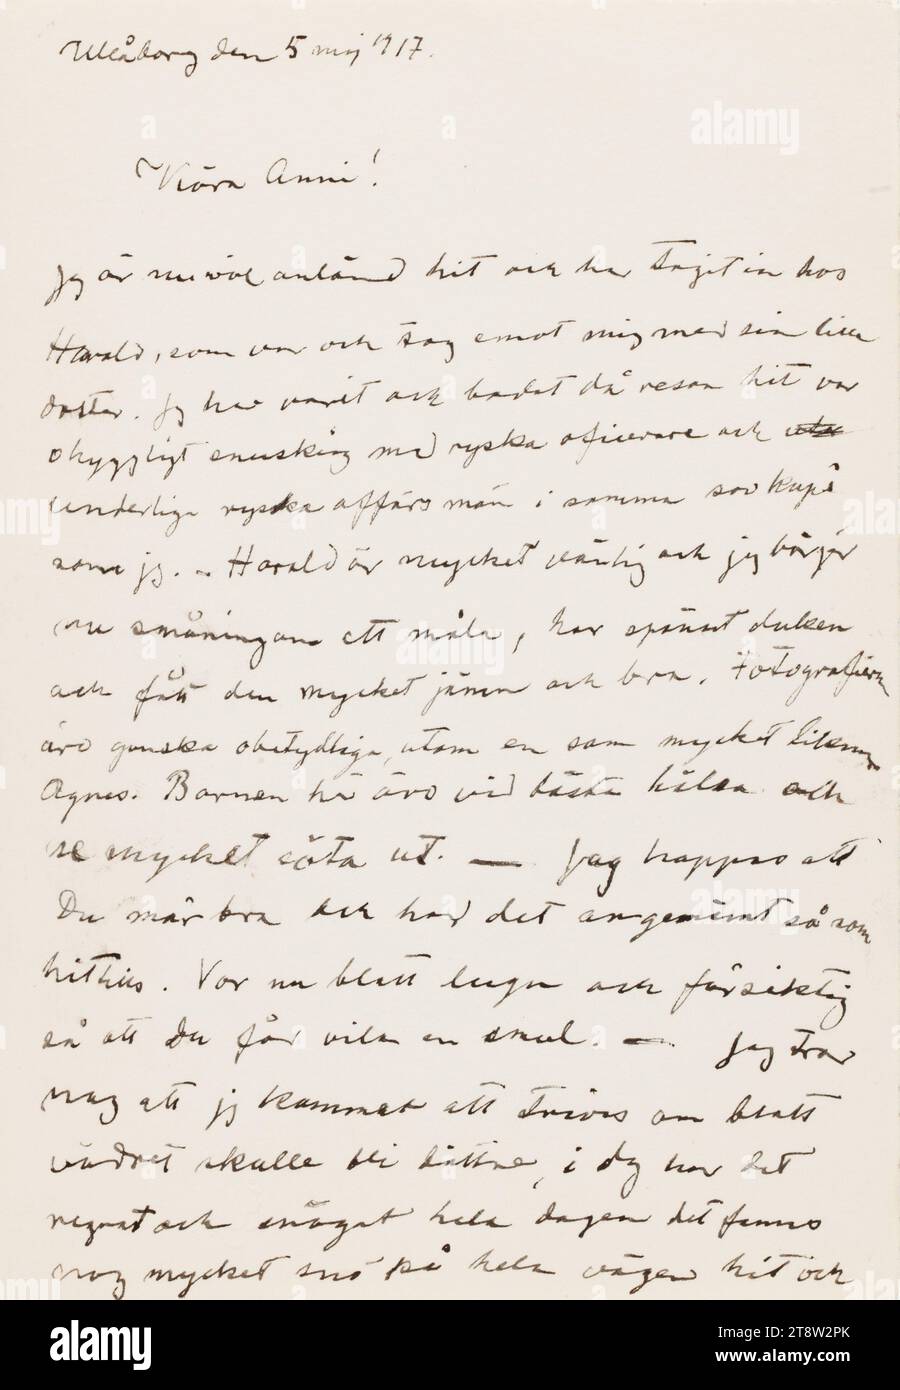 Uleåborg den 5 maj 1917.
Kära Anni!
Jag är nu väl anländ hit och har tagit in hos
Harald, som var och tog emot mig med sin lilla
dotter. Jg har varit och badat då resan hit var
ohyggligt snuskig med ryska oficerare och
underliga ryska affärs män i samma sovkupé
som jg. – Harald är mycket vänlig och jg börjar
nu småningom att måla, har spännt duken
och fått den mycket jämn och bra. Fotografierna
äro ganska obetydliga, utom en som mycket liknar
Agnes. Barnen här äro vid bästa hälsa och
se mycket söta ut. — Jag hoppas att
Du mår bra och har det angenämt så som
hittills. Var nu blott lugn och försiktig
så att Du får vila en smul. — Jag tror
nog att jg kommer att trivas om blott
vädret skulle bli bättre, i dg har det
regnat och snögat hela dagen det fanns
nog mycket snö på hela vägen hit och
alamy
Image ID: 2T8W2PK
www.alamy.com